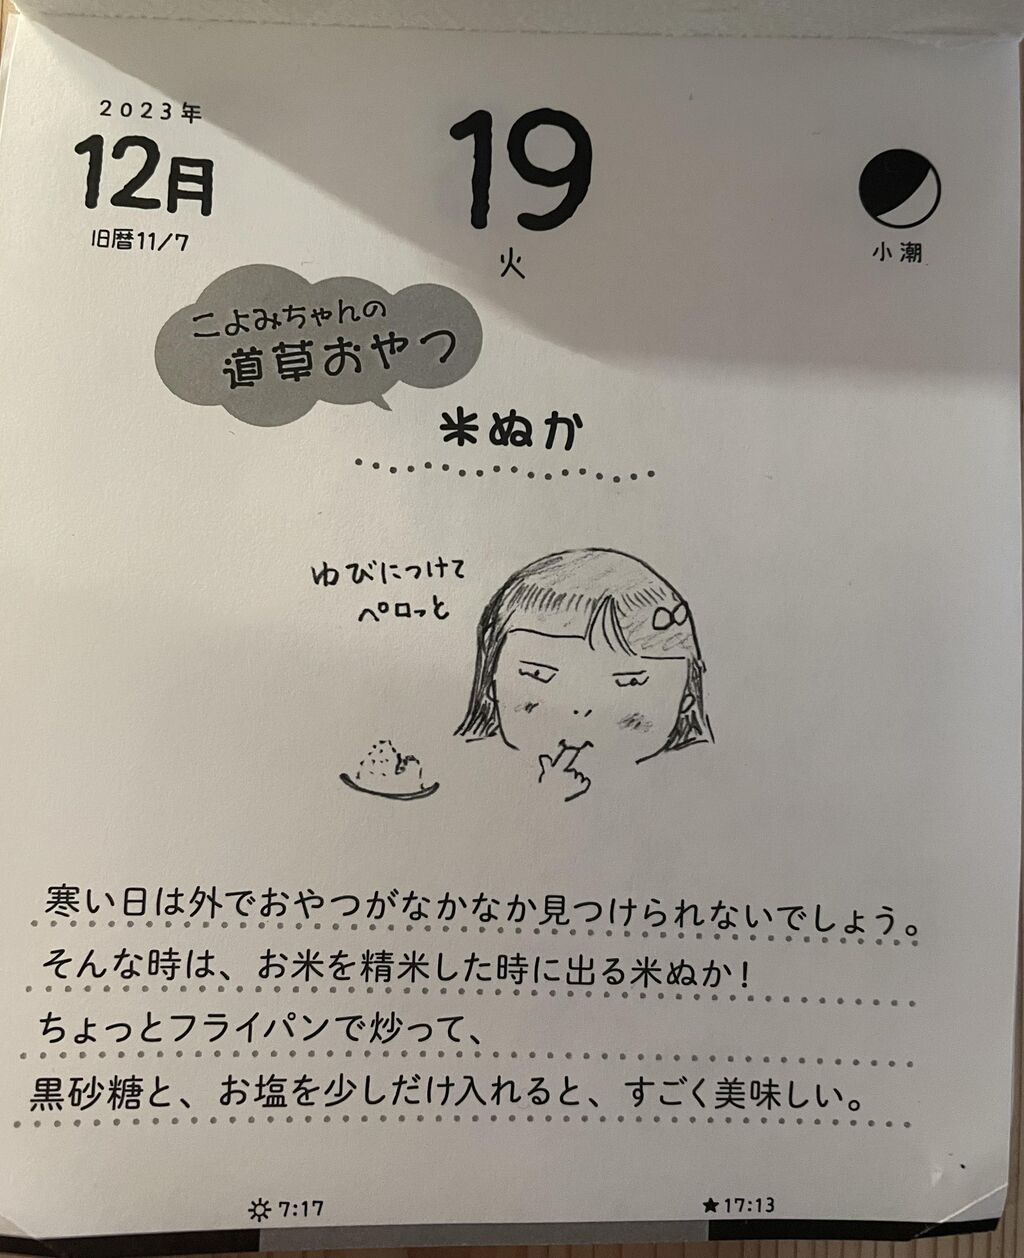 2023年
12月
旧暦11/7
19
火
小潮
こよみちゃんの
道草おやつ
米ぬか
ゆびにつけて
ペロっと
寒い日は外でおやつがなかなか見つけられないでしょう。
そんな時は、お米を精米した時に出る米ぬか！
ちょっとフライパンで炒って、
黒砂糖と、お塩を少しだけ入れると、すごく美味しい。
7:17
★17:13